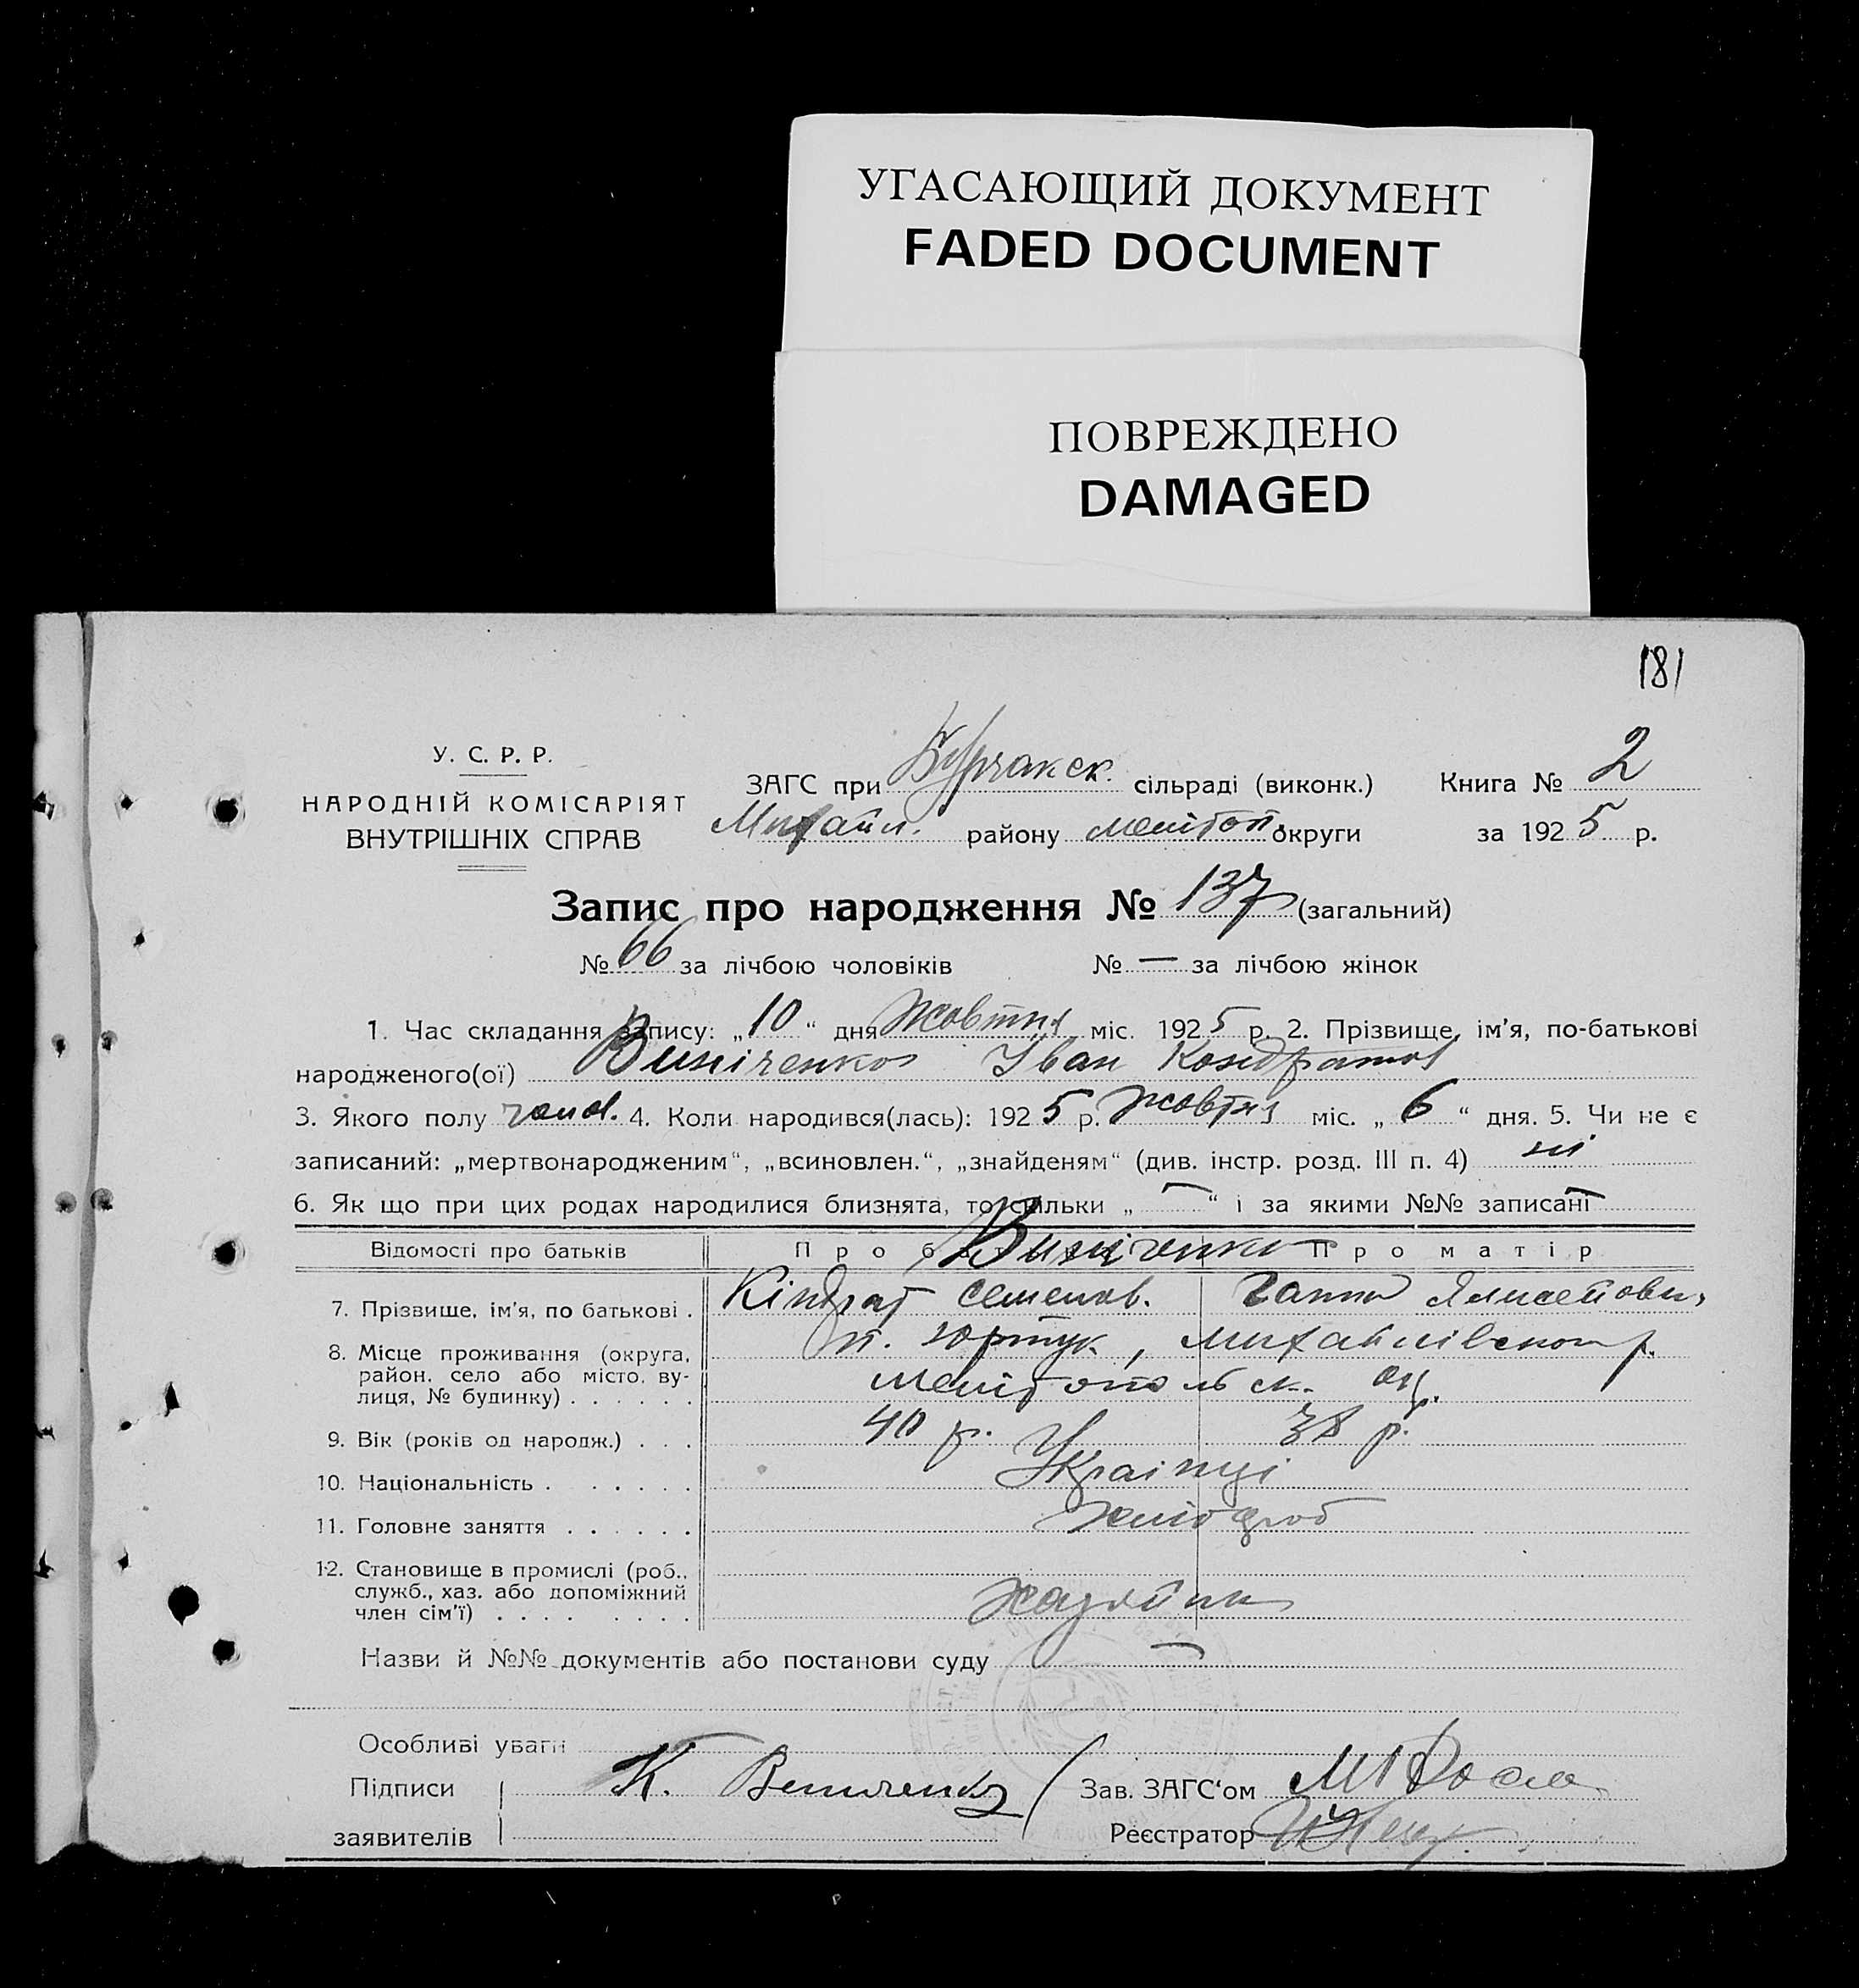 УГАСАЮЩИЙ ДОКУМЕНТ
FADED DOCUMENT
ПОВРЕЖДЕНО
DAMAGED
181
У. С. Р. Р.
НАРОДНІЙ КОМІСАРІЯТ
ВНУТРІШНІХ СПРАВ
ЗАГС при Бурчакск. сільраді (виконк.) Книга № 2
Михайл. району Мелітоп. округи за 1925 р.
Запис про народження № 137 (загальний)
№ 66 за лічбою чоловіків № — за лічбою жінок
1. Час складання запису: „10“ дня Жовтня міс. 1925 р. 2. Прізвище, ім'я, по-батькові
народженого(ої) Виніченко Іван Кондратов
3. Якого полу чол. 4. Коли народився(лась): 1925 р. Жовтня міс. „6“ дня. 5. Чи не є
записаний: „мертвонародженим“, „всиновлен.“, „знайденям“ (див. інстр. розд. III п. 4) ні
6. Як що при цих родах народилися близнята, то скільки „—“ і за якими №№ записані —
Відомості про батьків Про батька Про матір
Виніченко
7. Прізвище, ім'я, по батькові . Кіндрат Семенов. Ганна
8. Місце проживання (округа, район, село або місто, вулиця, № будинку) . . . . . . Михайлівськ р.
Мелітопольск. ок.
9. Вік (років од народж.) . . . 40 р. 38 р.
10. Національність . . . . . . Українці
11. Головне заняття . . . . . . хлібороб
12. Становище в промислі (роб., служб., хаз. або допоміжний член сім'ї) . . . . . . . . хазяїни
Назви й №№ документів або постанови суду —
Особливі уваги
Підписи К. Виниченко Зав. ЗАГС'ом
заявителів Реєстратор